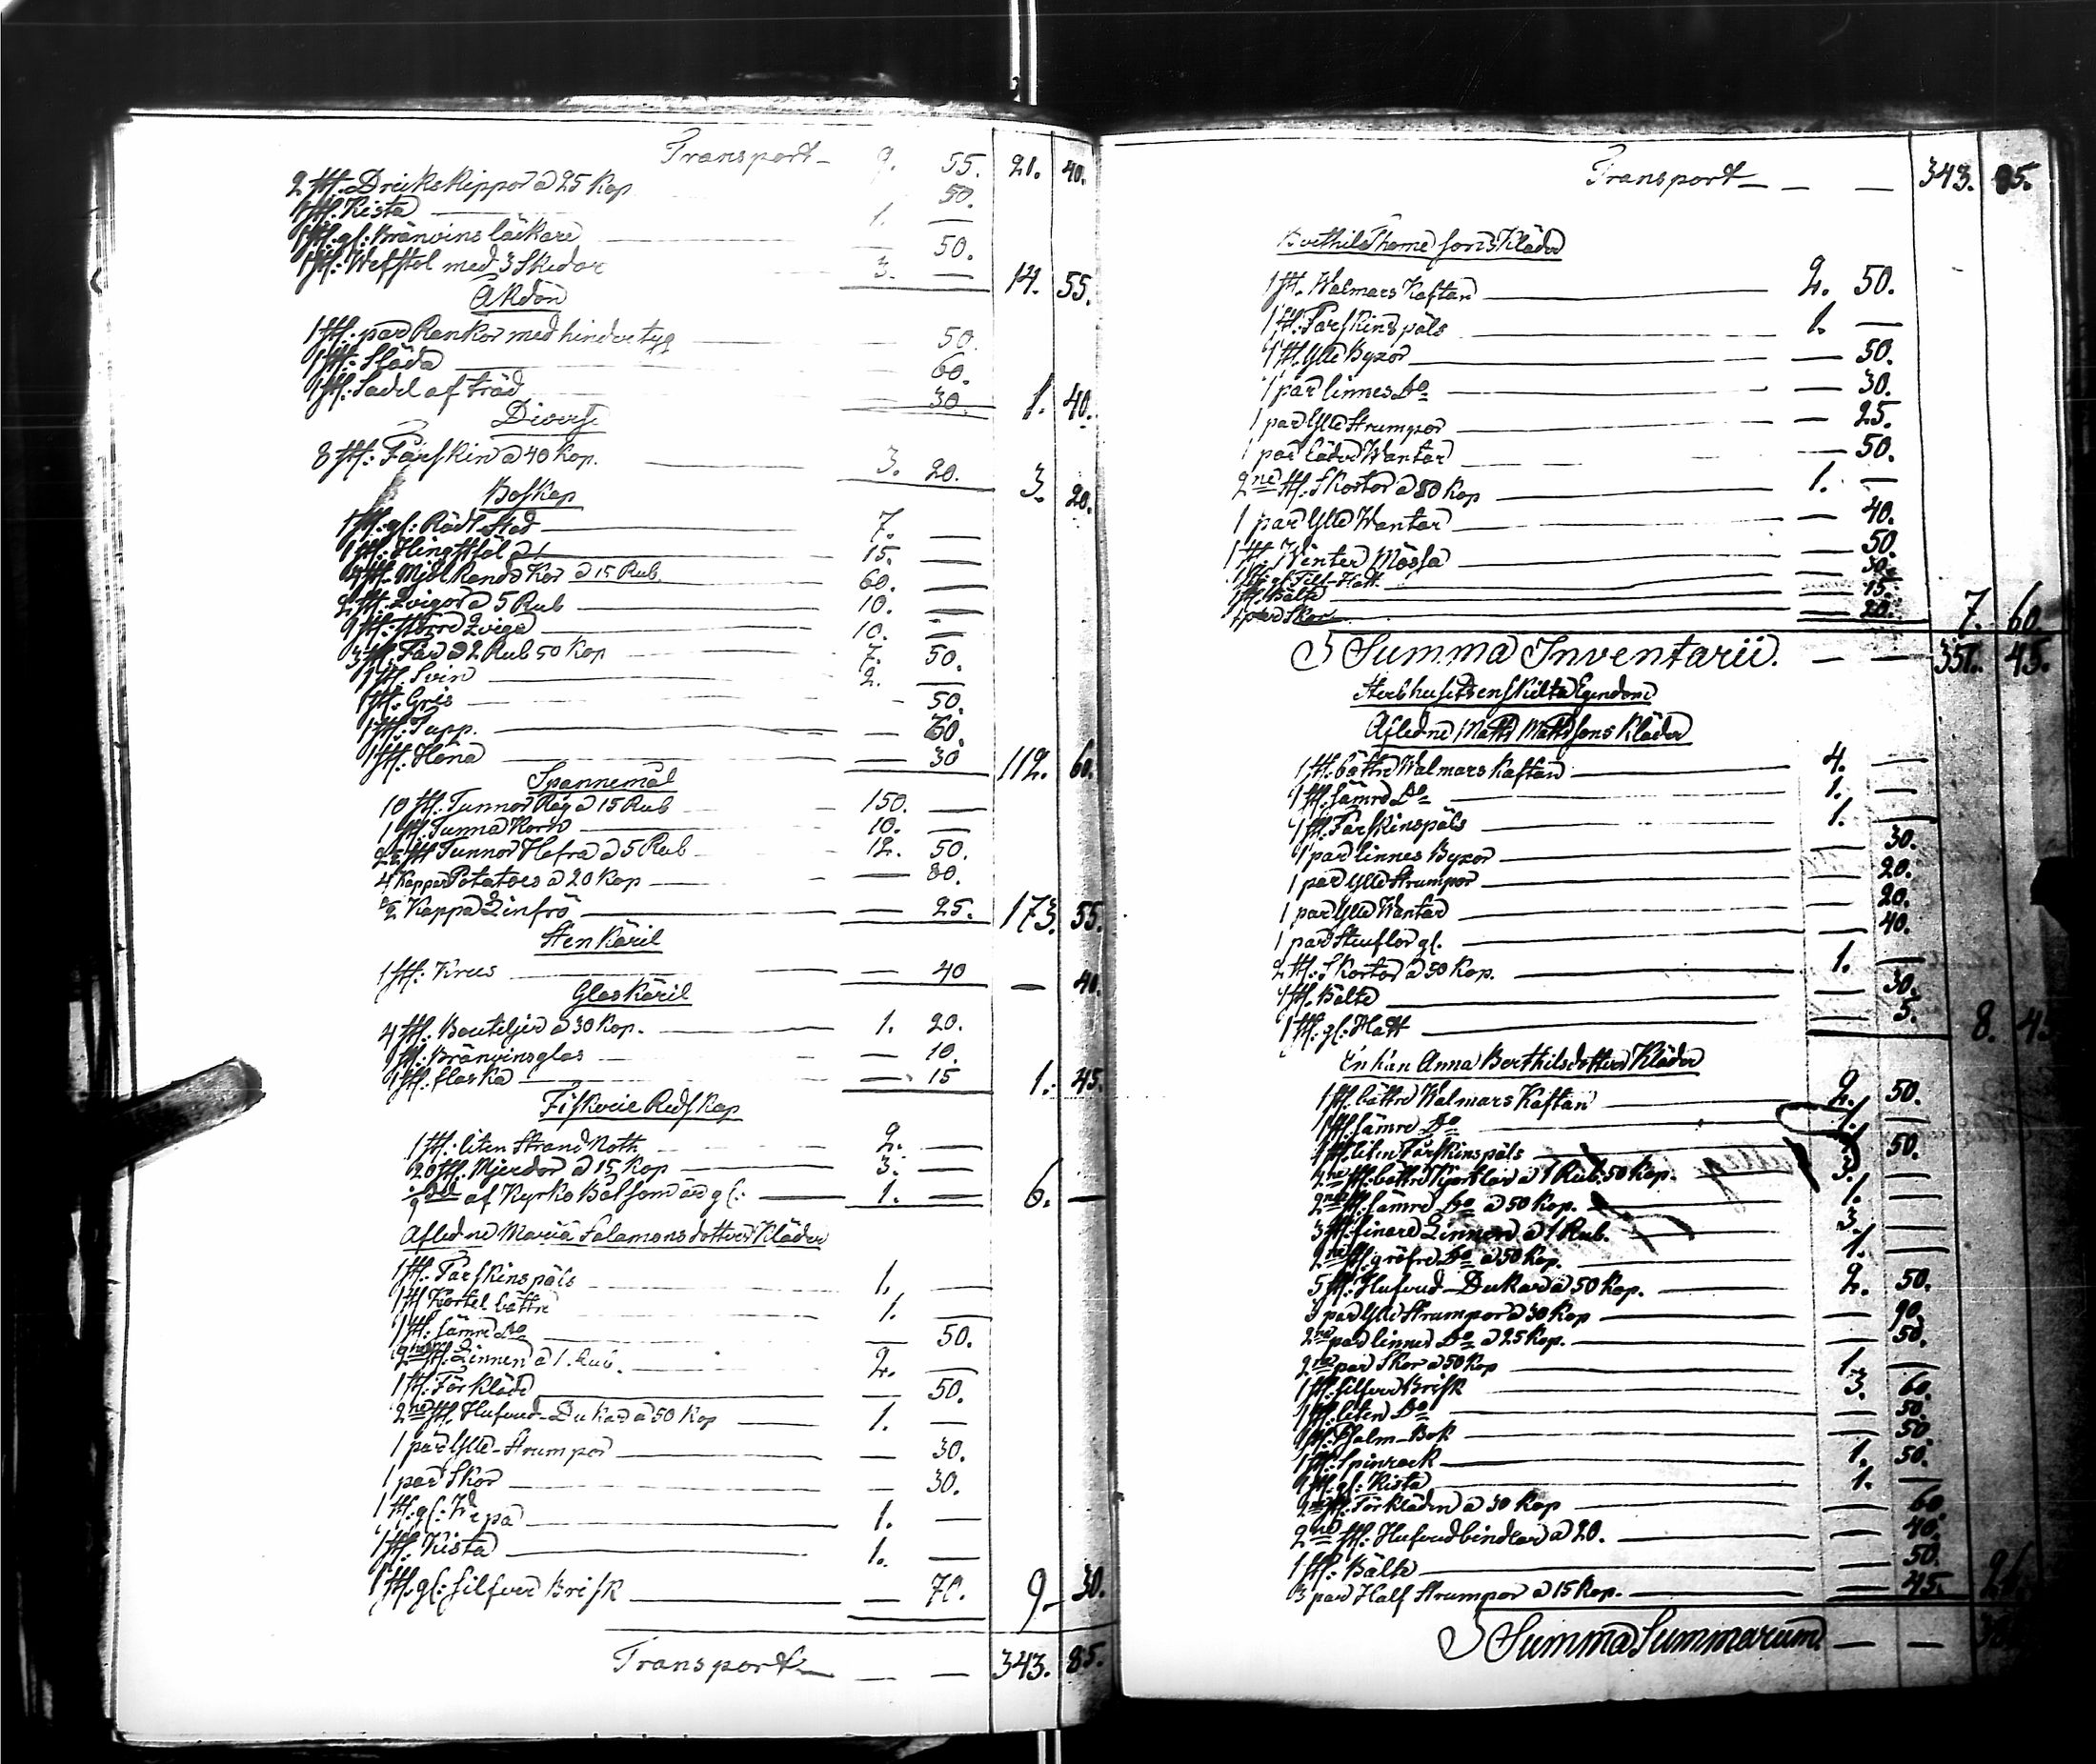 Transport — 9. 55. 20. 40.
2 st: Drickskippor a 25 Kop 50.
1 st: Kista 1. —
1 st: gl: Bränvins läckare — 50.
1 st: Wefstol med 3 Skedar 3. — 14. 55.
Åkdon
1 st: par Rankor med hindertyg — 50.
1 st: Släda — 60.
1 st: Sadel af träd — 30. 1. 40.
Diverse
8 st: Fårskin a 40 Kop. 3. 20. 3. 20.
Boskap
1 st: gl: Rödt Stod 7. —
1 st: Hingstföl 15. —
4 st: Mjölkande Kor a 15 Rub. 60. —
2 st: Qvigor a 5 Rub 10. —
1 st: större Qviga 10. —
3 st: Får a 2 Rub 50 Kop 7. 50.
1 st: Svin 2. —
1 st: Gris — 50.
1 st: Tupp. — 30.
1 st: Höna — 30 112. 60.
Spannemål
10 st: Tunnor Råg a 15 Rub 150. —
1 st: Tunna Korn 10. —
2½ st Tunnor Hafra a 5 Rub 12. 50.
4 Kappar Potatoes a 20 Kop — 80.
½ Kappa Linfrö — 25. 173. 55.
Stenkäril
1 st: Krus — 40 — 40.
Glaskäril
4 st: Bouteljer a 30 Kop. 1. 20.
1 st: Bränvinsglas — 10.
1 st: flaska — 15 1. 45.
Fiskerie Redskap
1 st: liten Strand Noth 2. —
20 st: Mjerdor a 15 Kop 3. —
af Kyrko Båt som är gl: 1. — 6. —
Afledne Maria Salamonsdotters Kläder
1 st: Fårskinspäls 1. —
1 st Kortel bättre 1. —
1 st: sämre Do — 50.
2ne st: Linnen a 1 Rub. 2. —
1 st: Förkläde — 50.
2ne st. Hufvud-Dukar a 50 Kop 1. —
1 par Ylle-Strumpor — 30.
1 par Skor — 30.
1 st: gl: Wepa 1. —
1 st: Kista 1. —
1 st. gl: Silfver Brisk — 70. 9. 30.
Transport — — 343. 85.
Transport — — 343. 85.
Berthil Thomessons Kläder
1 st. Walmars Kaftan 2. 50.
1 st: Fårskins päls 1. —
1 st. Ylle Byxor — 50.
1 par linnes Do — 30.
1 par Ylle Strumpor — 25.
1 par Läder Wantar — 50.
2ne st: Skortor a 50 Kop 1. —
1 par Ylle Wantar — 40.
1 st. Winter Mössa — 50.
1 st: gl: Filt-Hatt — 30.
1 st. Bälte — 15.
1 par Skor — 20. 7. 60.
Summa Inventarii. — — 351. 45.
Sterbhusets enskilta Egendom
Afledne Matts Mattssons Kläder
1 st. bättre Walmars Kaftan 4. —
1 st. sämre Do 1. —
1 st. Fårskinspäls 1. —
1 par linnes Byxor — 30.
1 par Ylle Strumpor — 20.
1 par Ylle Wantar — 20.
1 par Stuflor gl. — 40.
2 st: Skortor a 50 Kop. 1. —
1 st. Bälte — 30.
1 st. gl: Hatt — 5. 8. 45
Enkan Anna Berthilsdotters Kläder
1 st. bättre Walmars Kaftan 2. 50.
1 st. sämre Do 1. —
1 st. liten Fårskinspäls — 50.
2ne st: bättre Kjortlar a 1 Rub. 50 Kop. 3. —
2ne st. sämre Do a 50 Kop. 1. —
3 st: finare Linnen a 1 Rub. 3. —
2ne st. gröfre Do a 50 Kop. 1. —
5 st: Hufvud-Dukar a 50 Kop. 2. 50.
3 par Ylle Strumpor a 30 Kop — 90.
2ne par linnes Do a 25 Kop. — 50.
2ne par Skor a 50 Kop 1. —
1 st. Silfver Brisk 3. 60.
1 st: liten Do — 50.
1 st: Psalm-Bok — 50.
1 st: Spinrock 1. 50.
1 st: gl: Kista 1. —
2ne st. Förkläden a 30 Kop — 60.
2ne st: Hufvudbindlar a 20. — 40.
1 st: Bälte — 50.
3 par Half Strumpor a 15 Kop. — 45.
Summa Summarum — —